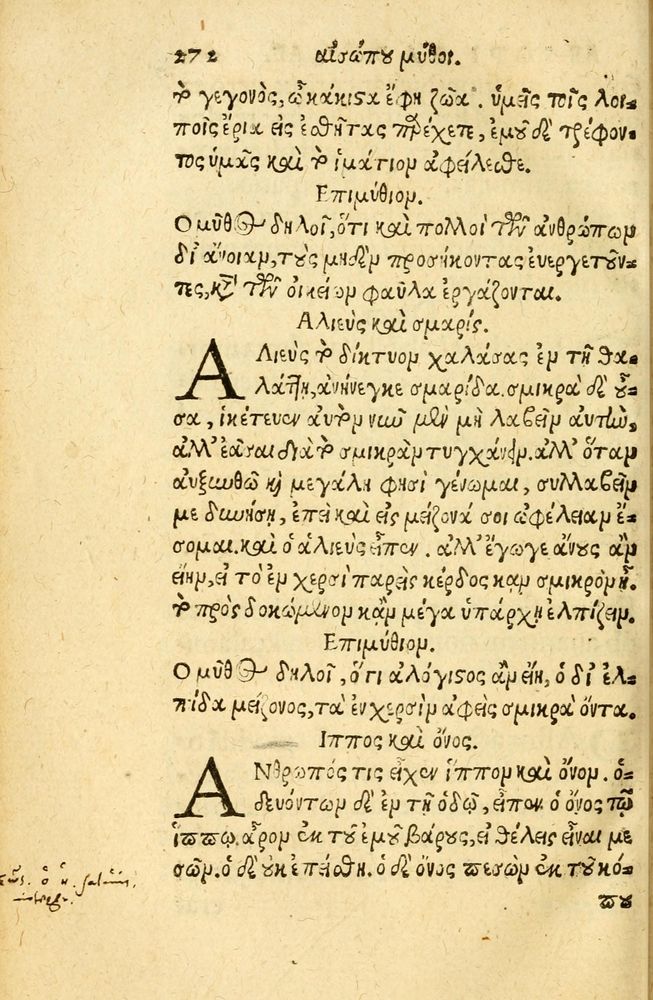 272 αἰσώπου μῦθοι.
τὸ γεγονὸς, ὦ κάκιστα ἔφη ζῶα. ὑμεῖς τοῖς λοι-
ποῖς ἔρια εἰς ἐσθῆτας παρέχετε, ἐμοῦ δὲ τρέφον-
τος ὑμᾶς καὶ τὸ ἱμάτιον ἀφείλεσθε.
Επιμύθιον.
Ο μῦθος δηλοῖ, ὅτι καὶ πολλοὶ τῶν ἀνθρώπων
δι' ἄνοιαν, τοὺς μηδὲν προσήκοντας ἐυεργετοῦν-
τες, κατὰ τῶν οἰκείων φαῦλα ἐργάζονται.
Αλιεὺς καὶ σμαρίς.
Αλιεὺς τὸ δίκτυον χαλάσας ἐν τῇ θα-
λάττῃ, ἀνήνεγκε σμαρίδα. σμικρὰ δὲ οὖ-
σα, ἱκέτευεν ἀυτὸν νῦν μὲν μὴ λαβεῖν αυτὴν,
ἀλλ' ἐᾶσαι διὰ τὸ σμικρὰν τυγχάνειν. ἀλλ' ὅταν
αυξυνθῶ καὶ μεγάλη φησὶ γένωμαι, συλλαβεῖν
με δυνήσῃ, ἐπεὶ καὶ εἰς μείζονά σοι ὠφέλειαν ἔ-
σομαι. καὶ ὁ ἁλιεὺς εἶπεν. ἀλλ' ἔγωγε ἄνους ἂν
εἴην, εἰ τὸ ἐν χερσὶ παρεὶς κέρδος κᾂν σμικρὸν ᾖ.
τὸ προσδοκώμενον κἂν μέγα ὑπάρχῃ ἐλπίζειν.
Επιμύθιον.
Ο μῦθος δηλοῖ, ὅτι ἀλόγιστος ἂν εἴη, ὁ δι' ἐλ-
πίδα μείζονος, τὰ ἐν χερσὶν ἀφεὶς σμικρὰ ὄντα.
Ιππος καὶ ὄνος.
Ανθρωπός τις εἶχεν ἵππον καὶ ὄνον. ὁ-
δευόντων δὲ ἐν τῇ ὁδῷ, εἶπεν ὁ ὄνος τῷ
ἵππῳ. ἆρον ἐκ τοῦ ἐμοῦ βάρους, εἰ θέλεις εἶναι με
σῶν. ὁ δὲ οὐκ ἐπείσθη. ὁ δὲ ὄνος πεσὼν ἐκ τοῦ κό-
που